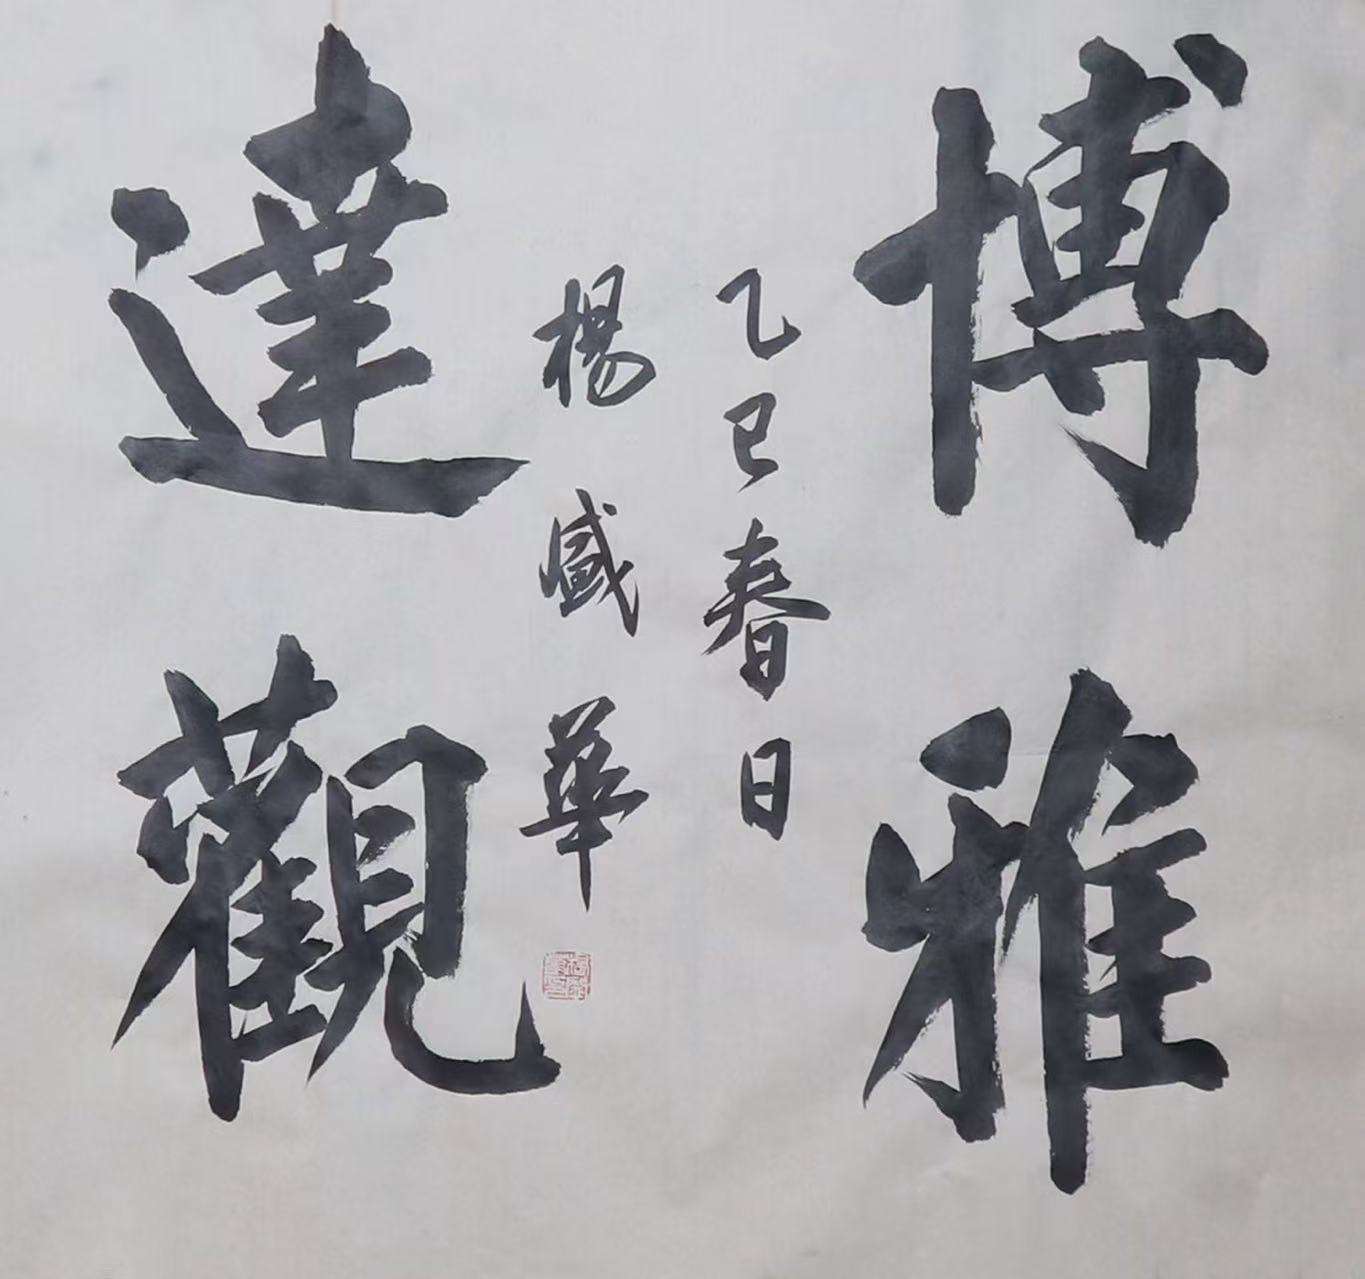 博雅
乙巳春日
達觀
楊盛華